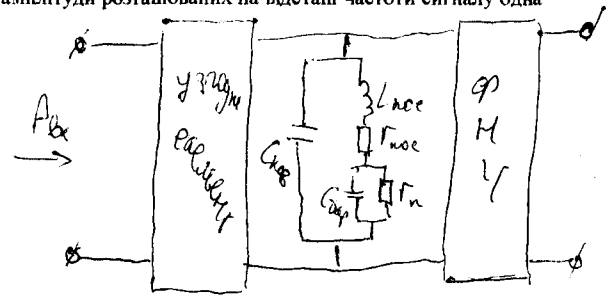 амплітуди розташованих на відстані частоти сигналу одна
Aвх
узгодж
елемент
Cкор
Lпос
rпос
Cбар
rп
Ф
Н
Ч